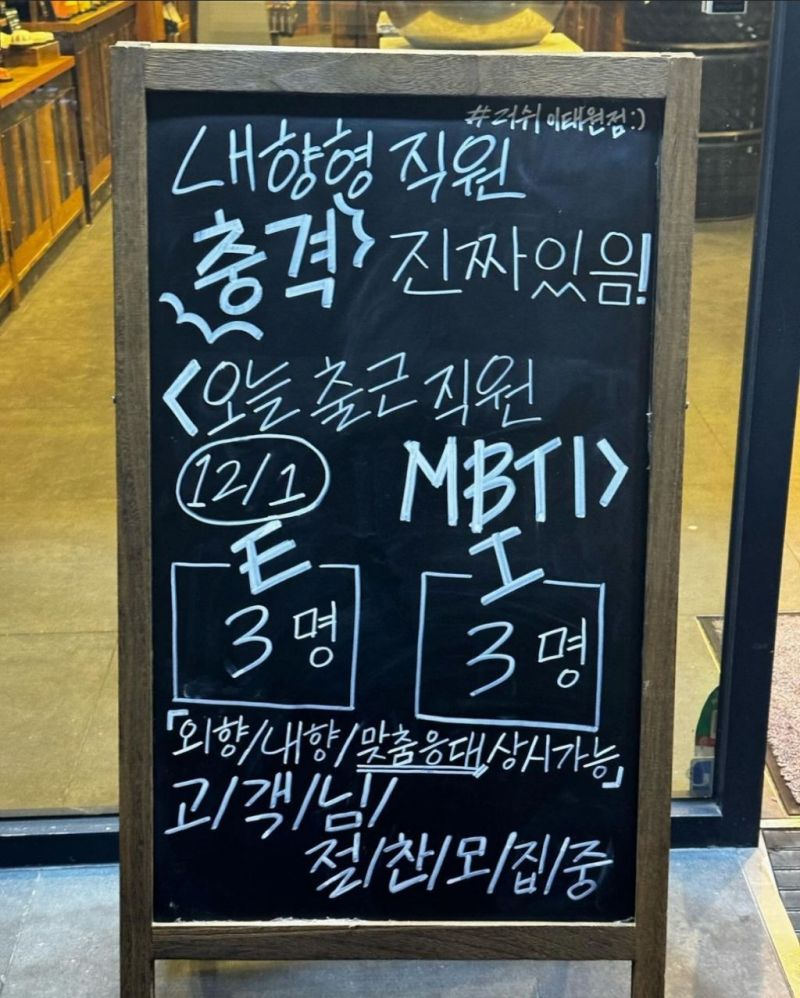 #러쉬 이태원점:)
내향형 직원
충격 진짜있음!
<오늘 출근 직원
12/1 MBTI>
E I
3명 3명
「외향/내향/맞춤응대, 상시가능」
고/객/님/
절/찬/모/집/중